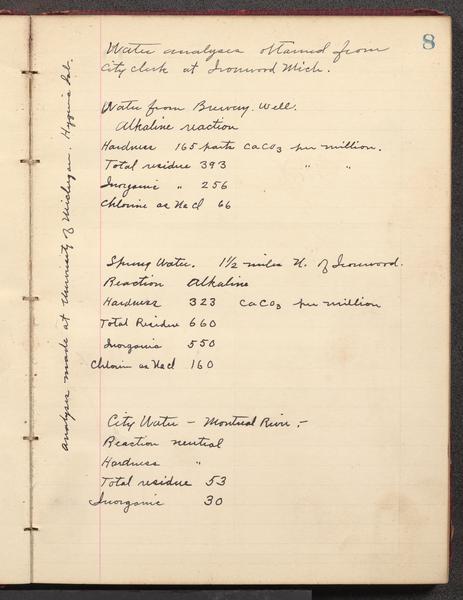 8
Water analyses obtained from
City clerk at Ironwood Mich.
Water from Brewery Well.
Alkaline reaction
Hardness 165 parts CaCO3 per million.
Total residue 393 " "
Inorganic " 256
Chlorine as NaCl 66
Spring Water. 1 1/2 miles N. of Ironwood.
Reaction Alkaline
Hardness 323 CaCO3 per million
Total Residue 660
Inorganic 550
Chlorin as NaCl 160
City Water - Montreal River :-
Reaction neutral
Hardness "
Total residue 53
Inorganic 30
analyses made at University of Michigan. Hygenic Lab.